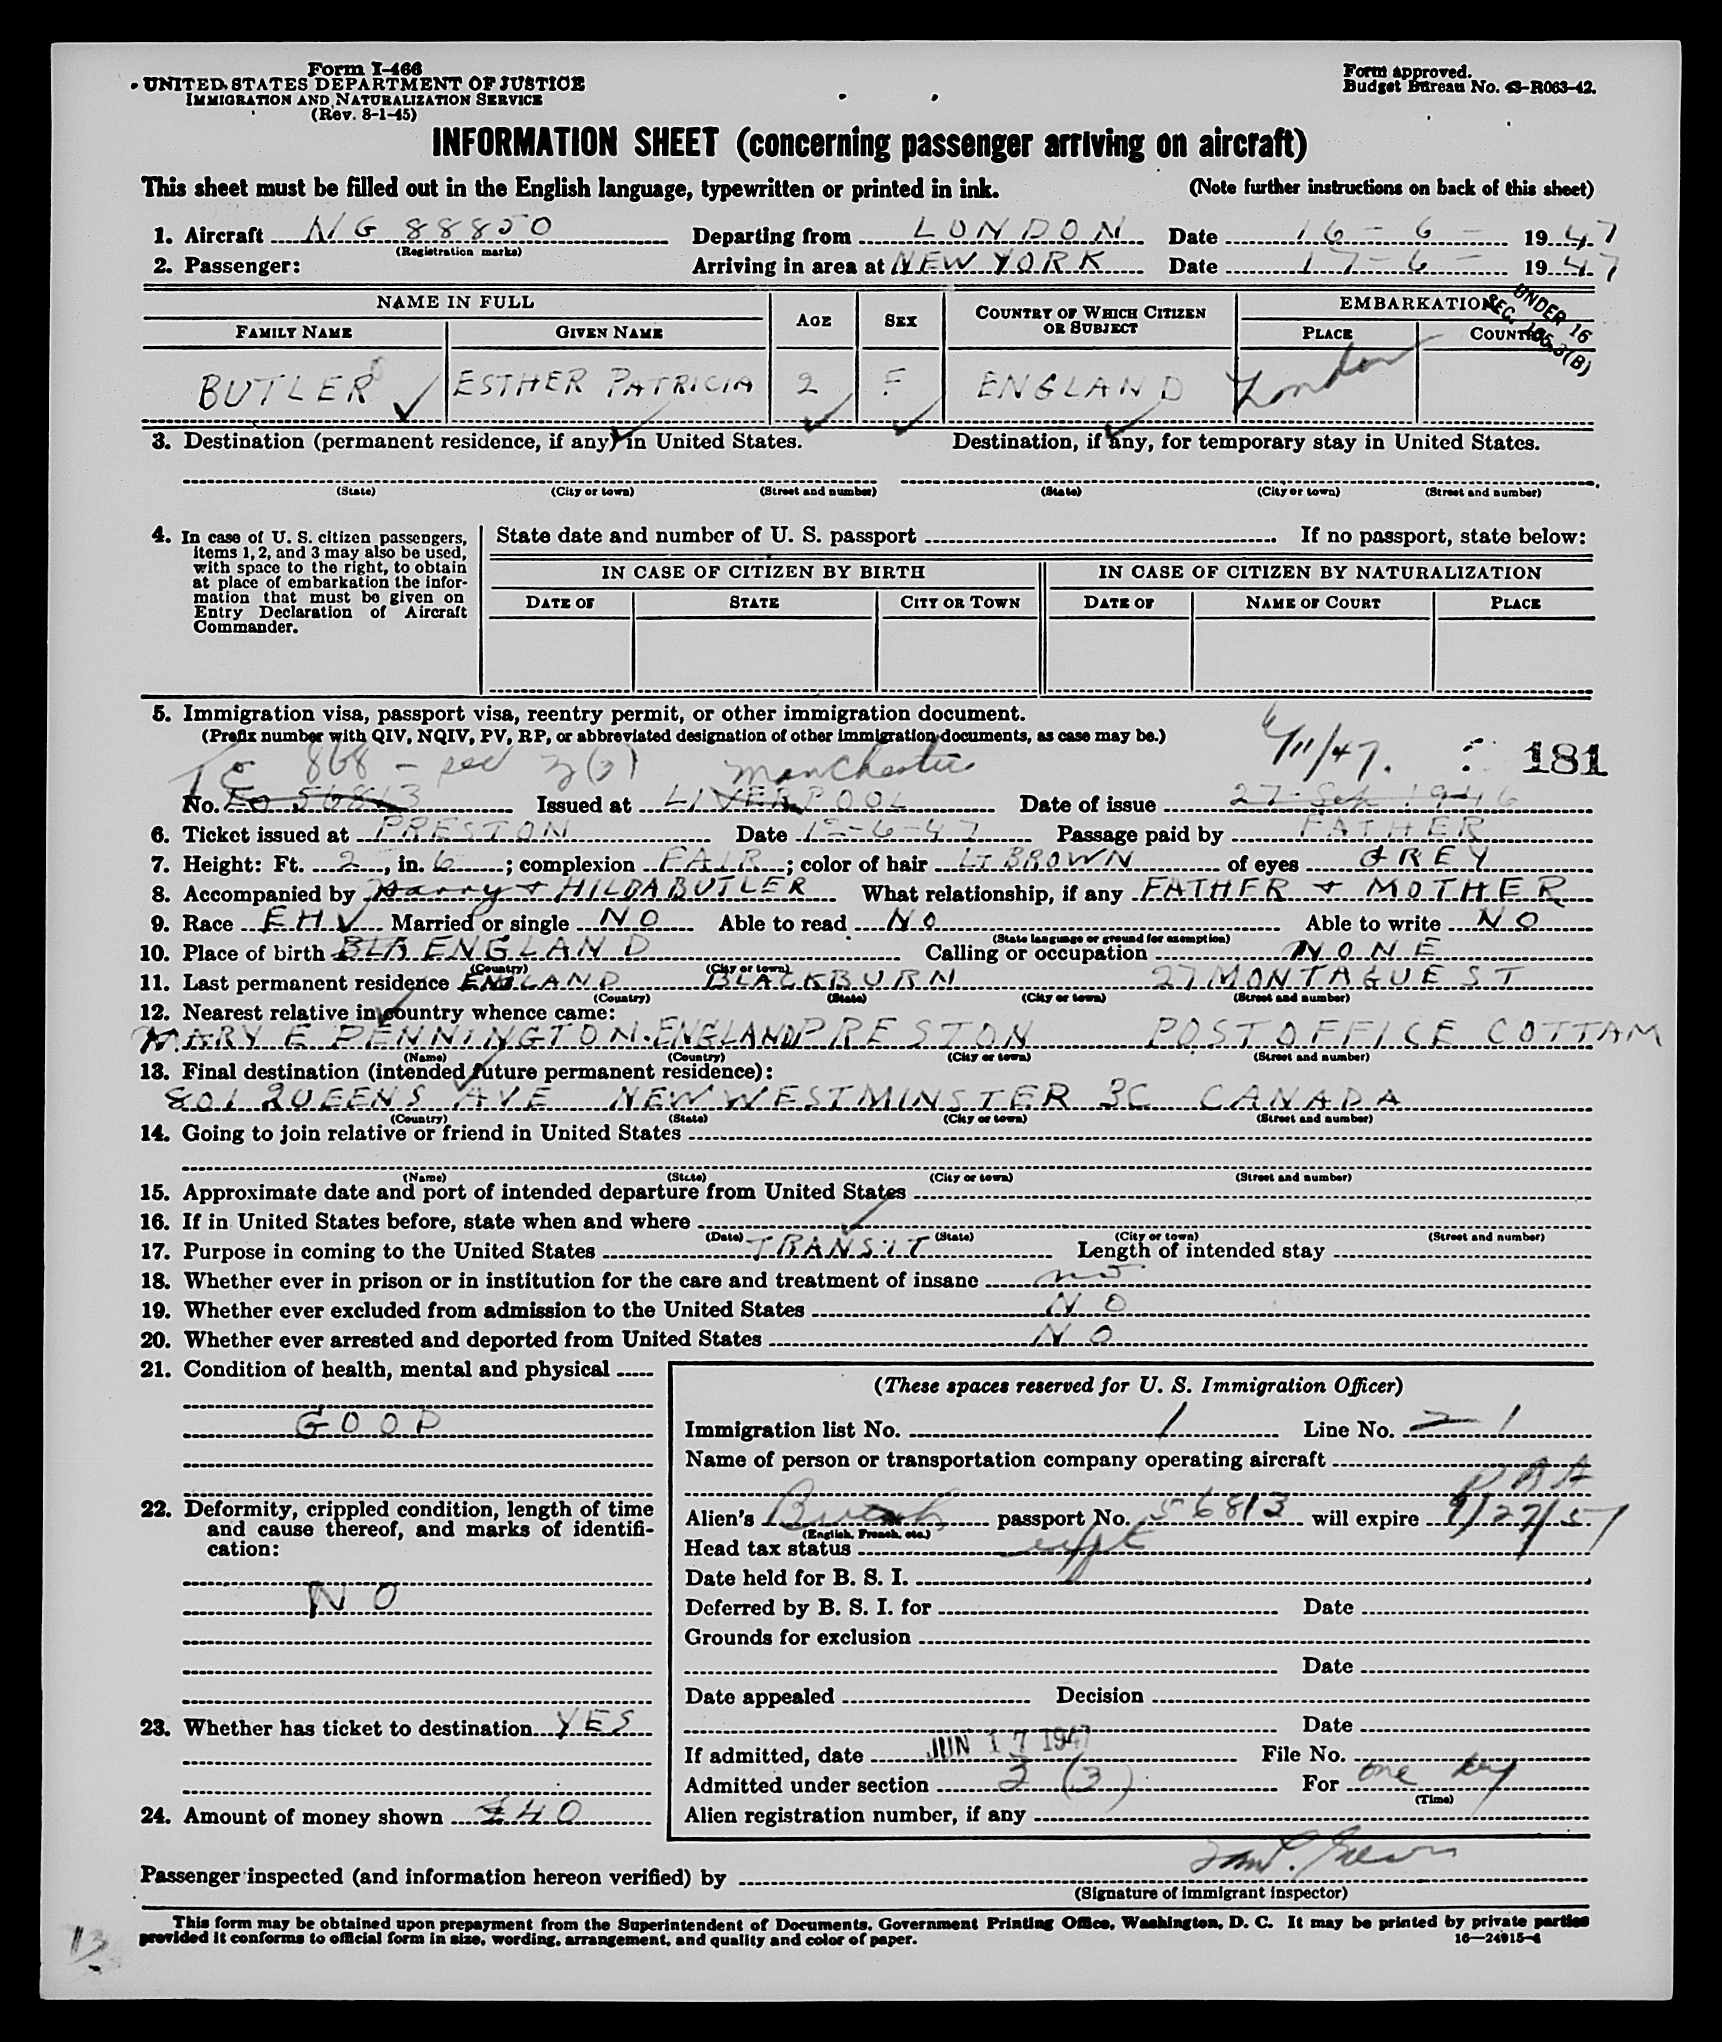 Form I-466
UNITED STATES DEPARTMENT OF JUSTICE
IMMIGRATION AND NATURALIZATION SERVICE
(Rev. 8-1-45)
Form approved.
Budget Bureau No. 43-R063-42.
INFORMATION SHEET (concerning passenger arriving on aircraft)
This sheet must be filled out in the English language, typewritten or printed in ink. (Note further instructions on back of this sheet)
1. Aircraft NG 88850 Departing from LONDON Date 16-6- 1947
(Registration marks)
2. Passenger: Arriving in area at NEW YORK Date 17-6- 1947
NAME IN FULL AGE SEX COUNTRY OF WHICH CITIZEN OR SUBJECT EMBARKATION
UNDER 16
SEC. 105.3(B)
FAMILY NAME GIVEN NAME PLACE COUNTRY
BUTLER ESTHER PATRICIA 2 F ENGLAND London
3. Destination (permanent residence, if any) in United States. Destination, if any, for temporary stay in United States.
(State) (City or town) (Street and number) (State) (City or town) (Street and number)
4. In case of U. S. citizen passengers, items 1, 2, and 3 may also be used, with space to the right, to obtain at place of embarkation the information that must be given on Entry Declaration of Aircraft Commander.
State date and number of U. S. passport If no passport, state below:
IN CASE OF CITIZEN BY BIRTH IN CASE OF CITIZEN BY NATURALIZATION
DATE OF STATE CITY OR TOWN DATE OF NAME OF COURT PLACE
5. Immigration visa, passport visa, reentry permit, or other immigration document.
(Prefix number with QIV, NQIV, PV, RP, or abbreviated designation of other immigration documents, as case may be.)
TC 868 - sec 3(3) Manchester 6/11/47. 181
No. 56813 Issued at LIVERPOOL Date of issue 27 Sep 1946
6. Ticket issued at PRESTON Date 12-6-47 Passage paid by FATHER
7. Height: Ft. 2, in. 6; complexion FAIR; color of hair LT BROWN of eyes GREY
8. Accompanied by Harry & HILDA BUTLER What relationship, if any FATHER & MOTHER
9. Race EH Married or single NO Able to read NO Able to write NO
(State language or ground for exemption)
10. Place of birth BLA ENGLAND Calling or occupation NONE
(Country) (City or town)
11. Last permanent residence ENGLAND BLACKBURN 27 MONTAGUE ST
(Country) (State) (City or town) (Street and number)
12. Nearest relative in country whence came:
MARY E PENNINGTON. ENGLAND PRESTON POST OFFICE COTTAM
(Name) (Country) (City or town) (Street and number)
13. Final destination (intended future permanent residence):
801 QUEENS AVE NEW WESTMINSTER BC CANADA
(Country) (State) (City or town) (Street and number)
14. Going to join relative or friend in United States
(Name) (State) (City or town) (Street and number)
15. Approximate date and port of intended departure from United States
16. If in United States before, state when and where
(Date) (State) (City or town) (Street and number)
17. Purpose in coming to the United States TRANSIT Length of intended stay
18. Whether ever in prison or in institution for the care and treatment of insane no
19. Whether ever excluded from admission to the United States NO
20. Whether ever arrested and deported from United States NO
21. Condition of health, mental and physical
GOOD
22. Deformity, crippled condition, length of time and cause thereof, and marks of identification:
NO
23. Whether has ticket to destination YES
24. Amount of money shown £40
(These spaces reserved for U. S. Immigration Officer)
Immigration list No. 1 Line No. 2 1
Name of person or transportation company operating aircraft
PAA
Alien's British passport No. 56813 will expire 9/27/51
(English, French, etc.)
Head tax status
Date held for B. S. I.
Deferred by B. S. I. for Date
Grounds for exclusion
Date
Date appealed Decision
Date
If admitted, date JUN 17 1947 File No.
Admitted under section 3 (3) For one day
(Time)
Alien registration number, if any
Passenger inspected (and information hereon verified) by
(Signature of immigrant inspector)
This form may be obtained upon prepayment from the Superintendent of Documents, Government Printing Office, Washington, D. C. It may be printed by private parties
provided it conforms to official form in size, wording, arrangement, and quality and color of paper. 16—24915-4
13